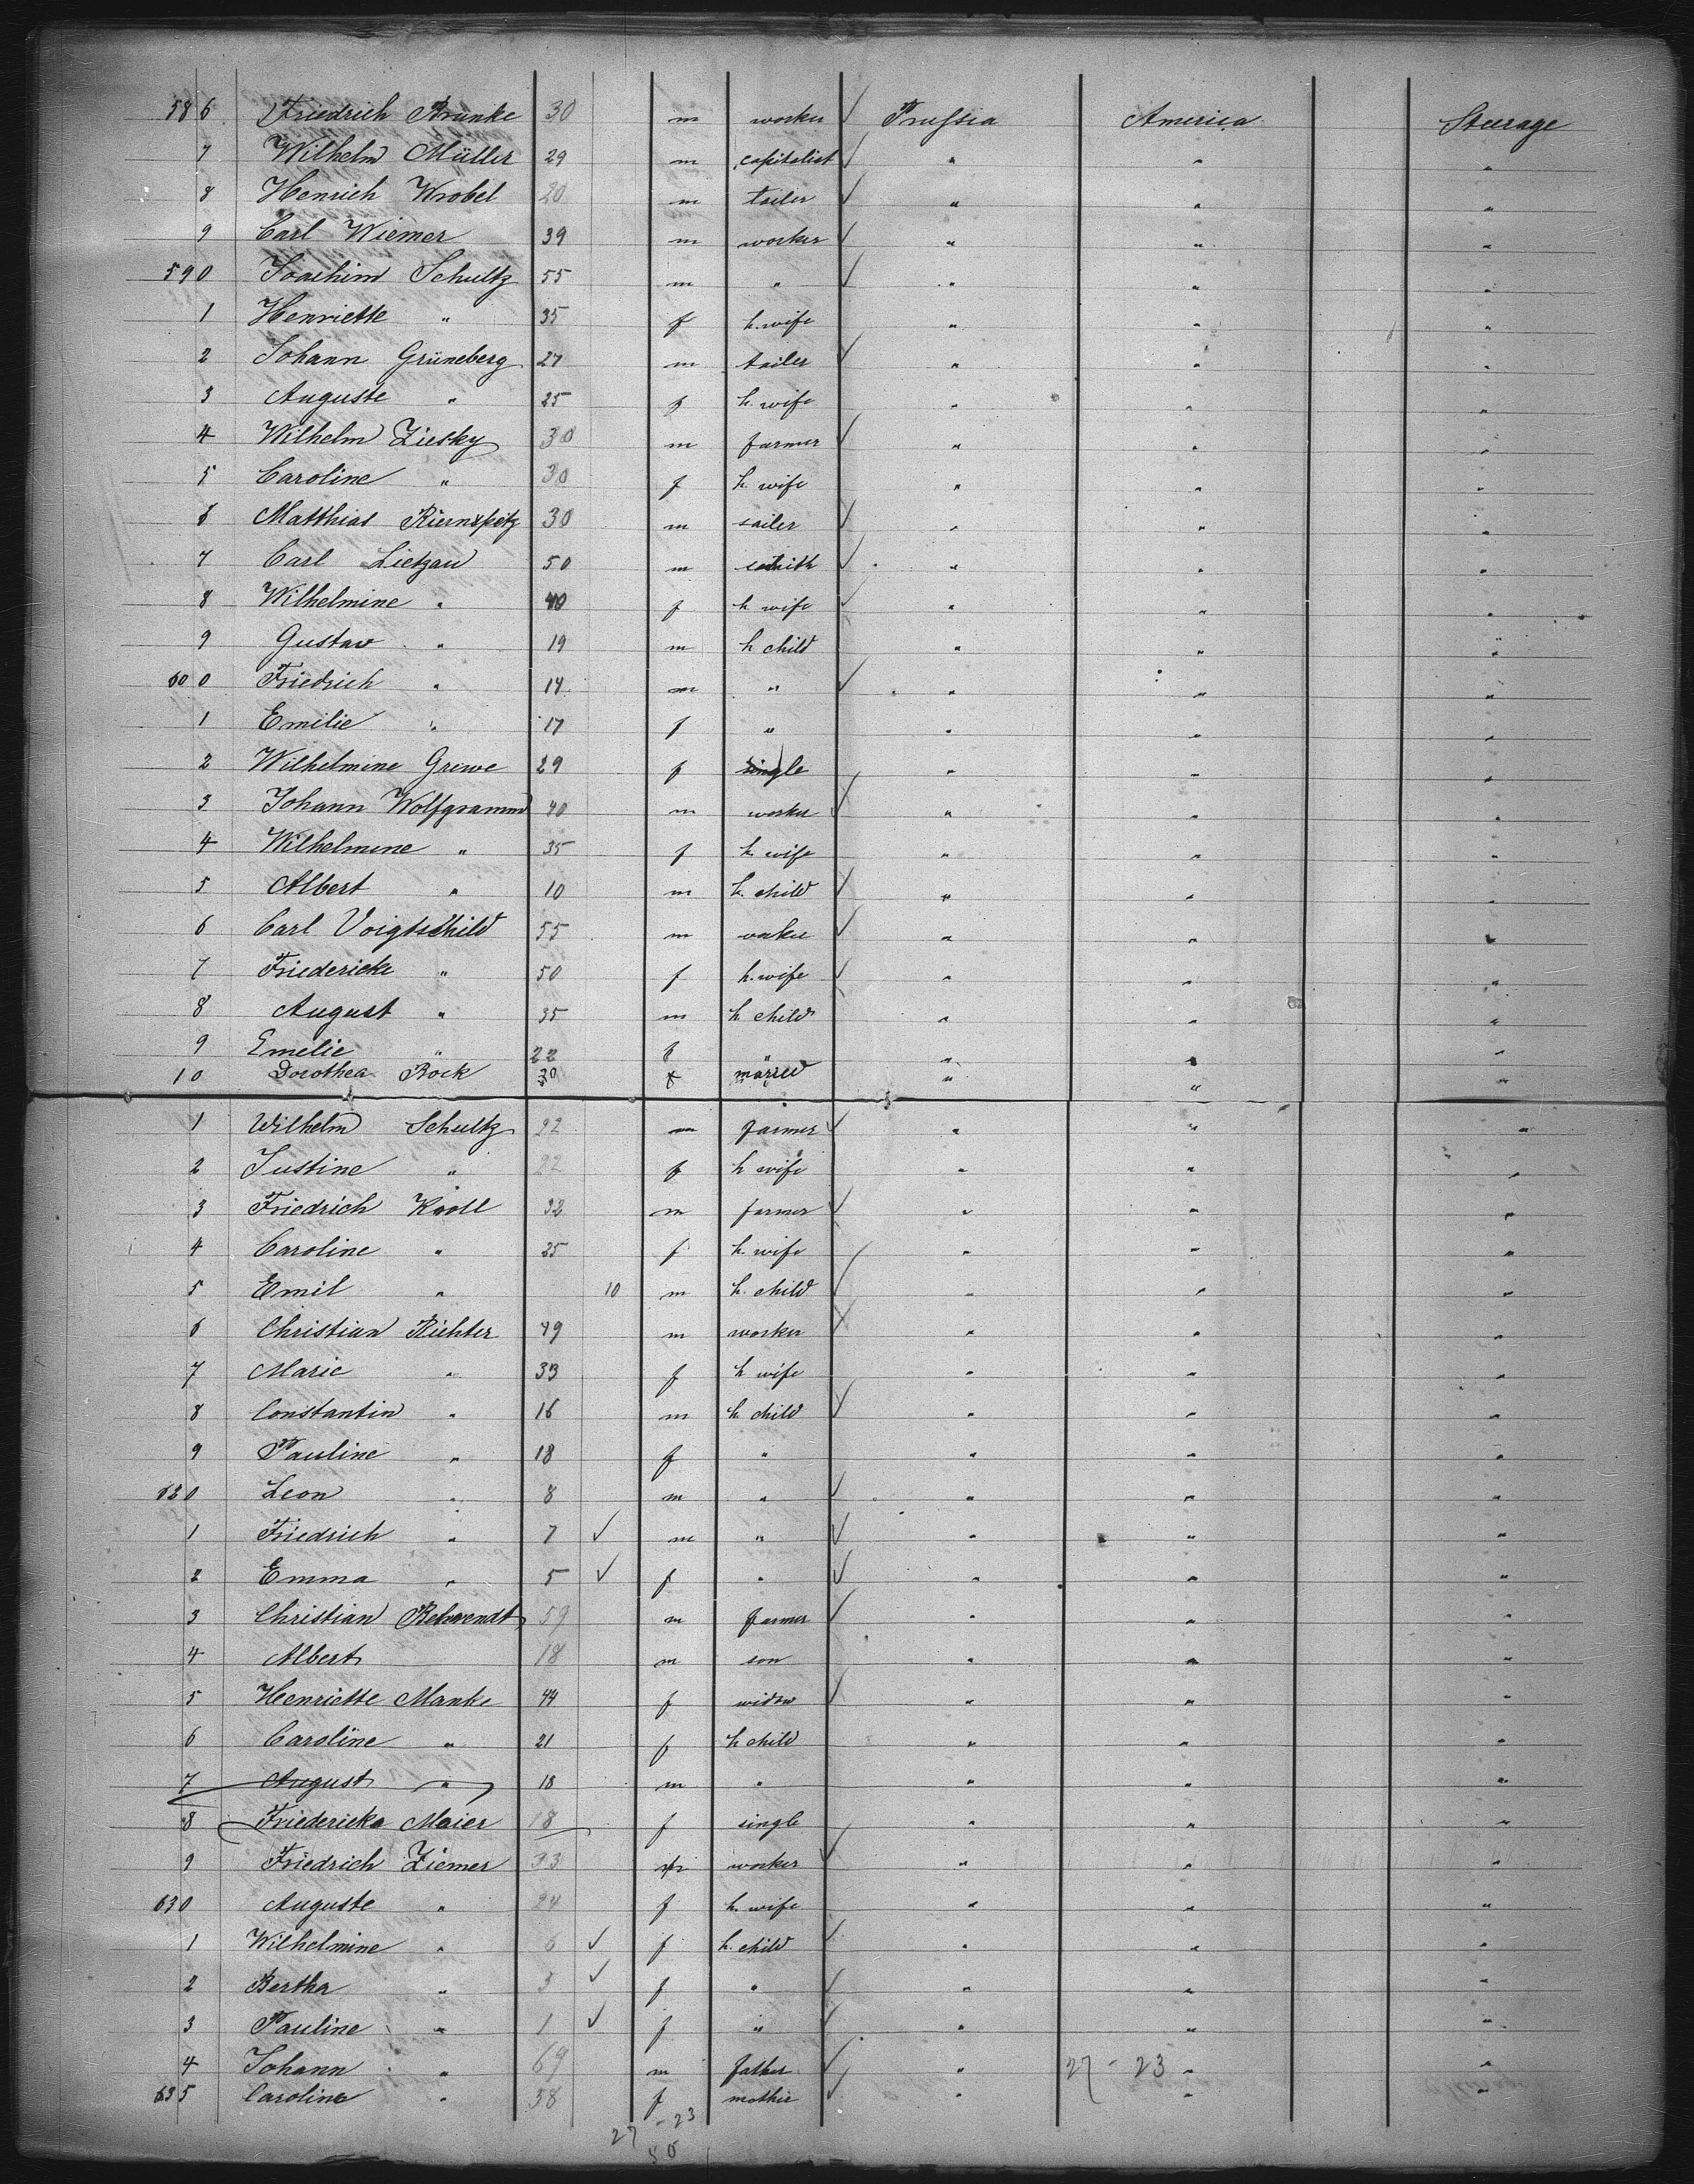 586 Friedrich Brünke 30 m worker ✓ Prussia America Steerage
7 Wilhelm Müller 29 m capitalist ✓ " " "
8 Henrich Wrobel 20 m tailer ✓ " " "
9 Carl Wiemer 39 m worker ✓ " " "
590 Joachim Schultz 55 m " ✓ " " "
1 Henriette " 35 f h. wife " " "
2 Johann Grüneberg 27 m tailer ✓ " " "
3 Auguste " 25 f h. wife " " "
4 Wilhelm Ziesky 30 m farmer ✓ " " "
5 Caroline " 30 f h. wife " " "
6 Matthias 30 m sailer ✓ " " "
7 Carl Lietzau 50 m ✓ " " "
8 Wilhelmine " 40 f h wife ✓ " " "
9 Gustav " 19 m h child " " "
600 Friedrich " 14 m " ✓ " " "
1 Emilie " 17 f " " " "
2 Wilhelmine Grewe 29 f single " " "
3 Johann Wolfgramm 40 m worker ✓ " " "
4 Wilhelmine " 35 f h. wife " " "
5 Albert " 10 m h. child ✓ " " "
6 Carl Voigtschild 55 m worker ✓ " " "
7 Friedericke " 50 f h. wife ✓ " " "
8 August " 35 m h child " " "
9 Emelie " 22 f " " " "
10 Dorothea Bock 30 f married " " "
1 Wilhelm Schultz 22 m farmer ✓ " " "
2 Justine " 22 f h wife " " "
3 Friedrich Kroll 32 m farmer ✓ " " "
4 Caroline " 25 f h. wife " " "
5 Emil " 10 m h. child ✓ " " "
6 Christian Richter 49 m worker " " "
7 Marie " 33 f h wife " " "
8 Constantin " 16 m h child ✓ " " "
9 Pauline " 18 f " " " "
620 Leon " 8 m " ✓ " " "
1 Friedrich " 7 ✓ m " ✓ " " "
2 Emma " 5 ✓ f " ✓ " " "
3 Christian Behrendt 59 m farmer ✓ " " "
4 Albert 18 m son " " "
5 Henriette Manke 44 f widow ✓ " " "
6 Caroline " 21 f h child " " "
7 August " 18 m " " " "
8 Friedericke Maier 18 f single " " "
9 Friedrich Ziemer 33 m worker ✓ " " "
630 Auguste " 24 f h. wife " " "
1 Wilhelmine " 6 ✓ f h. child ✓ " " "
2 Bertha " 3 ✓ f " ✓ " " "
3 Pauline " 1 ✓ f " ✓ " " "
4 Johann " 69 m father ✓ " 27 - 23 " "
635 Caroline " 58 f mother ✓ " " "
27 - 23
50